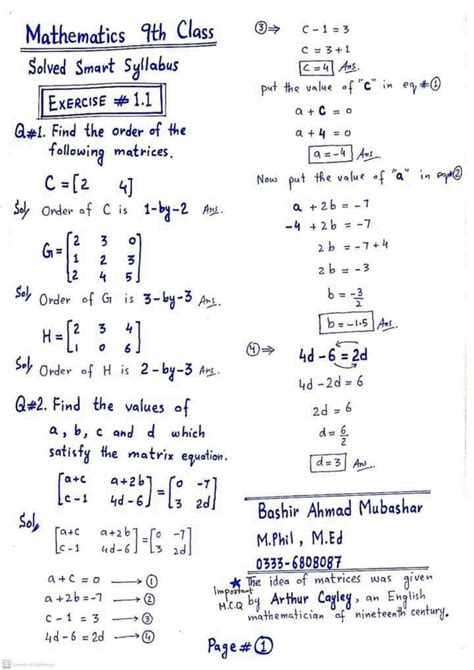 Mathematics 9th Class
Solved Smart Syllabus
EXERCISE # 1.1
Q#1. Find the order of the
following matrices.
C = [2 4]
Sol/ Order of C is 1-by-2 Ans.
G = [2 3 0
1 2 3
2 4 5]
Sol/ Order of G is 3-by-3 Ans.
H = [2 3 4
1 0 6]
Sol/ Order of H is 2-by-3 Ans.
Q#2. Find the values of
a, b, c and d which
satisfy the matrix equation.
[a+c a+2b
c-1 4d-6] = [0 -7
3 2d]
Sol/
[a+c a+2b
c-1 4d-6] = [0 -7
3 2d]
a+c = 0 → ①
a+2b = -7 → ②
c-1 = 3 → ③
4d-6 = 2d → ④
③ ⇒ c-1 = 3
c = 3+1
c = 4 Ans.
put the value of "c" in eq #①
a+c = 0
a+4 = 0
a = -4 Ans.
Now put the value of "a" in eq#②
a + 2b = -7
-4 + 2b = -7
2b = -7+4
2b = -3
b = -3/2
b = -1.5 Ans.
④ ⇒ 4d-6 = 2d
4d-2d = 6
2d = 6
d = 6/2
d = 3 Ans.
Bashir Ahmad Mubashar
M.Phil, M.Ed
0333-6808087
★ The idea of matrices was given
Important M.C.Q by Arthur Cayley, an English
mathematician of nineteenth century.
Page # ①